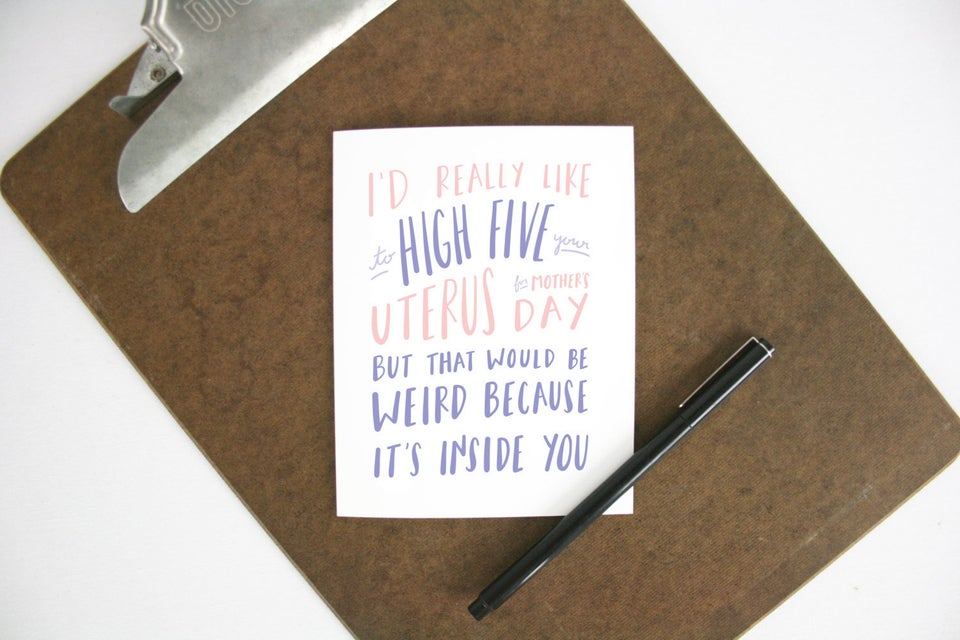 I'D REALLY LIKE
to HIGH FIVE your
UTERUS for MOTHER'S DAY
BUT THAT WOULD BE
WEIRD BECAUSE
IT'S INSIDE YOU